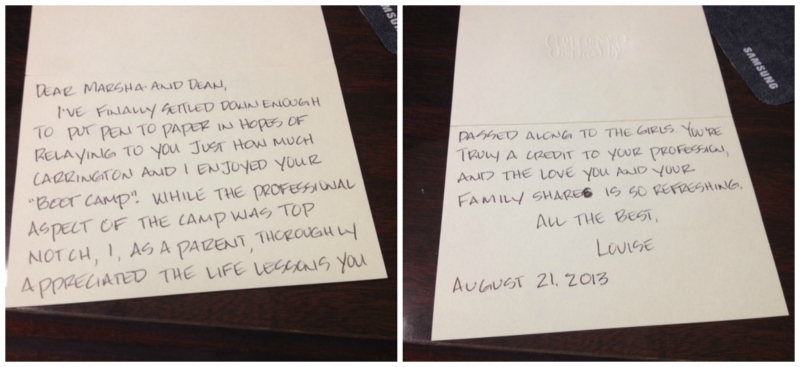 DEAR MARSHA AND DEAN,
I'VE FINALLY SETTLED DOWN ENOUGH
TO PUT PEN TO PAPER IN HOPES OF
RELAYING TO YOU JUST HOW MUCH
CARRINGTON AND I ENJOYED YOUR
"BOOT CAMP". WHILE THE PROFESSIONAL
ASPECT OF THE CAMP WAS TOP
NOTCH, I, AS A PARENT, THOROUGHLY
APPRECIATED THE LIFE LESSONS YOU
SAMSUNG
PASSED ALONG TO THE GIRLS. YOU'RE
TRULY A CREDIT TO YOUR PROFESSION,
AND THE LOVE YOU AND YOUR
FAMILY SHARES IS SO REFRESHING.
ALL THE BEST,
LOUISE
AUGUST 21, 2013